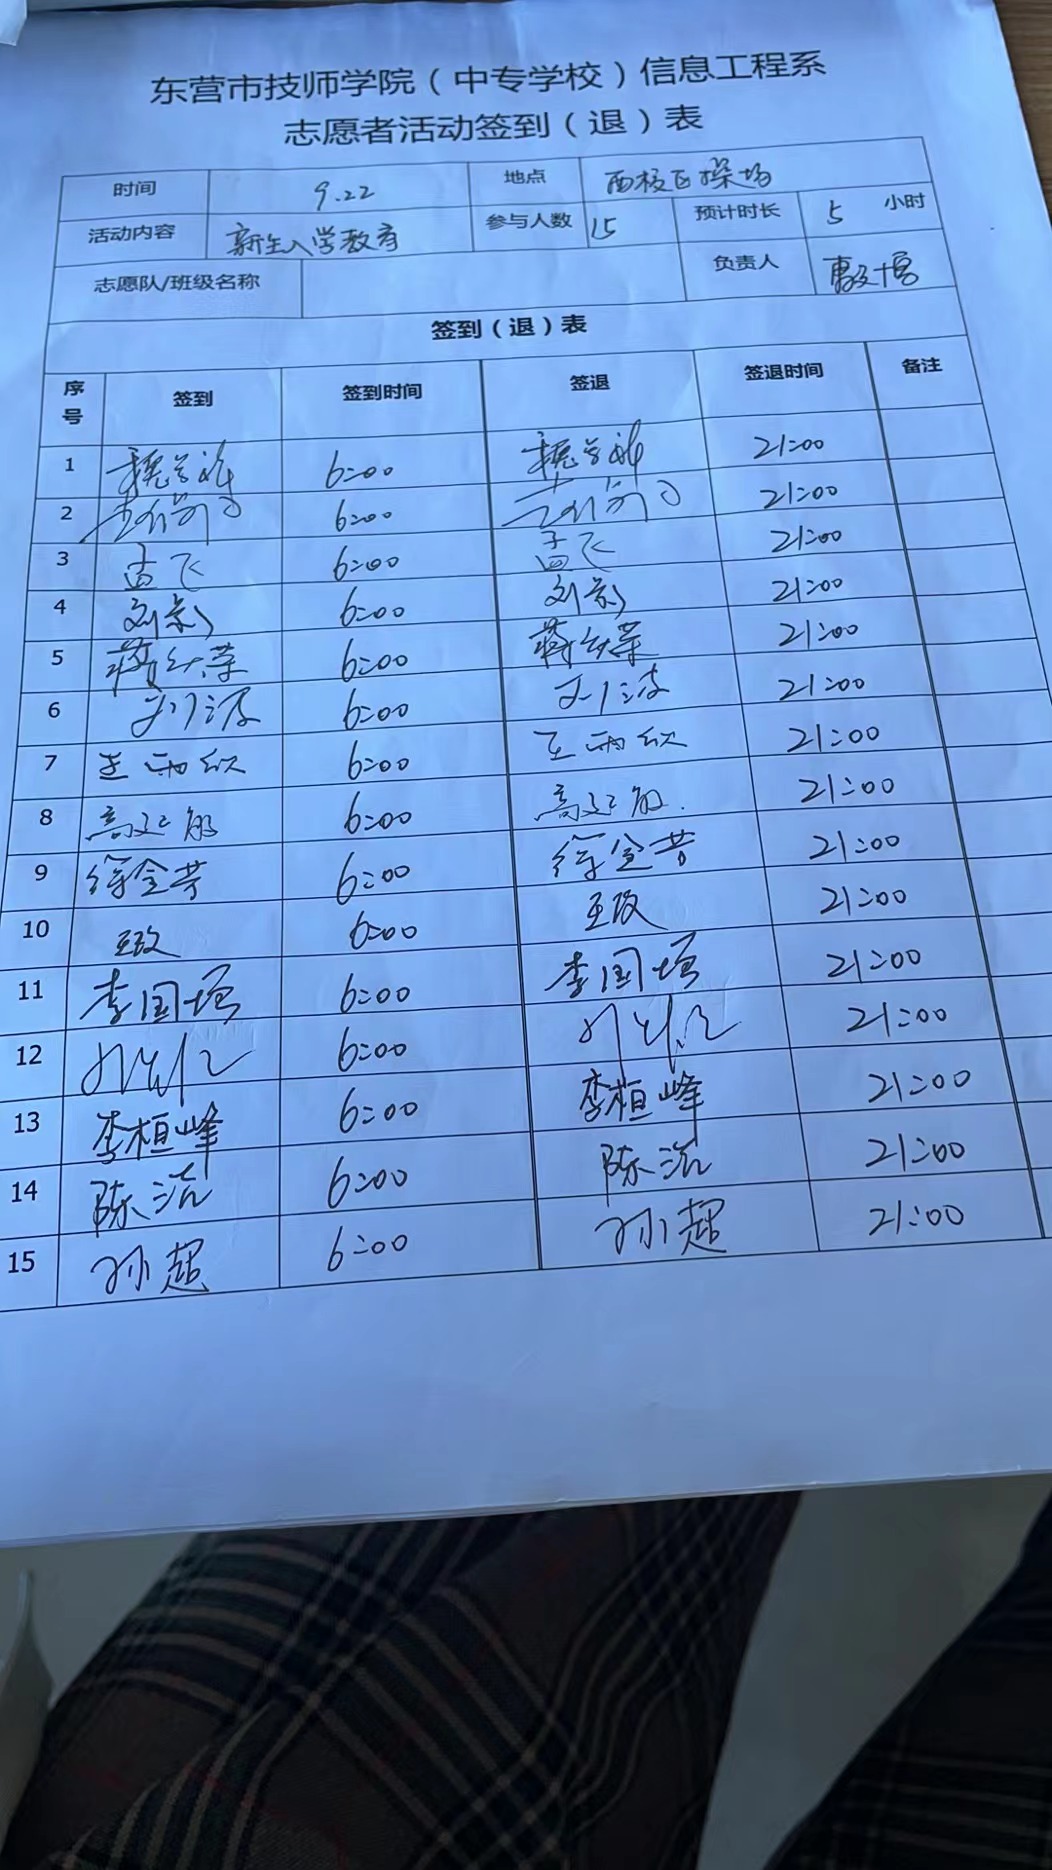 东营市技师学院（中专学校）信息工程系
志愿者活动签到（退）表
时间 9.22 地点 西校区操场
活动内容 新生入学教育 参与人数 15 预计时长 5 小时
志愿队/班级名称 负责人
签到（退）表
序号 签到 签到时间 签退 签退时间 备注
1 6:00 21:00
2 6:00 21:00
3 孟飞 6:00 孟飞 21:00
4 刘影 6:00 刘影 21:00
5 6:00 21:00
6 刘波 6:00 刘波 21:00
7 王雨欣 6:00 王雨欣 21:00
8 高延敏 6:00 高延敏 21:00
9 徐金芳 6:00 徐金芳 21:00
10 6:00 21:00
11 李国恒 6:00 李国恒 21:00
12 6:00 21:00
13 李桓峰 6:00 李桓峰 21:00
14 陈浩 6:00 陈浩 21:00
15 孙超 6:00 孙超 21:00